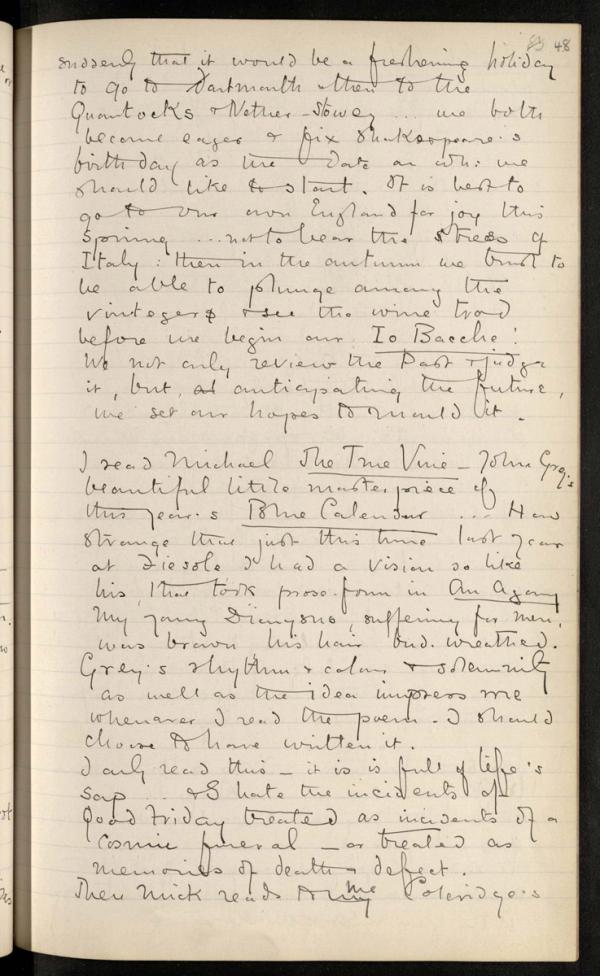 48
suddenly that it would be a freshening holiday
to go to Dartmouth & then to the
Quantocks & Nether-Stowey ... we both
become eager & fix Shakespeare's
birthday as the date on wh: we
should like to start. It is best to
go to our own England for joy this
Spring ... not to bear the stress of
Italy: then in the autumn we trust to
be able to plunge among the
vintagers & see the wine trod
before we begin our Io Bacche!
We not only review the Past & judge
it, but, anticipating the future,
we set our hopes to mould it.
I read Michael The True Vine – John Gray's
beautiful little masterpiece of
this year's Blue Calendar ... How
strange that just this time last year
at Fiesole I had a vision so like
his, that took prose-form in An Agony
My young Dionysus, suffering for men,
was brown his hair bud-wreathed.
Grey's rhythm & colour & solemnity
as well as the idea impress me
whenever I read the poem. I should
choose to have written it.
I only read this – it is is full of life's
sap ... & I hate the incidents of
Good Friday treated as incidents of a
Cosmic funeral – or treated as
memories of death & defeat.
Then Mick reads to me Coleridge's